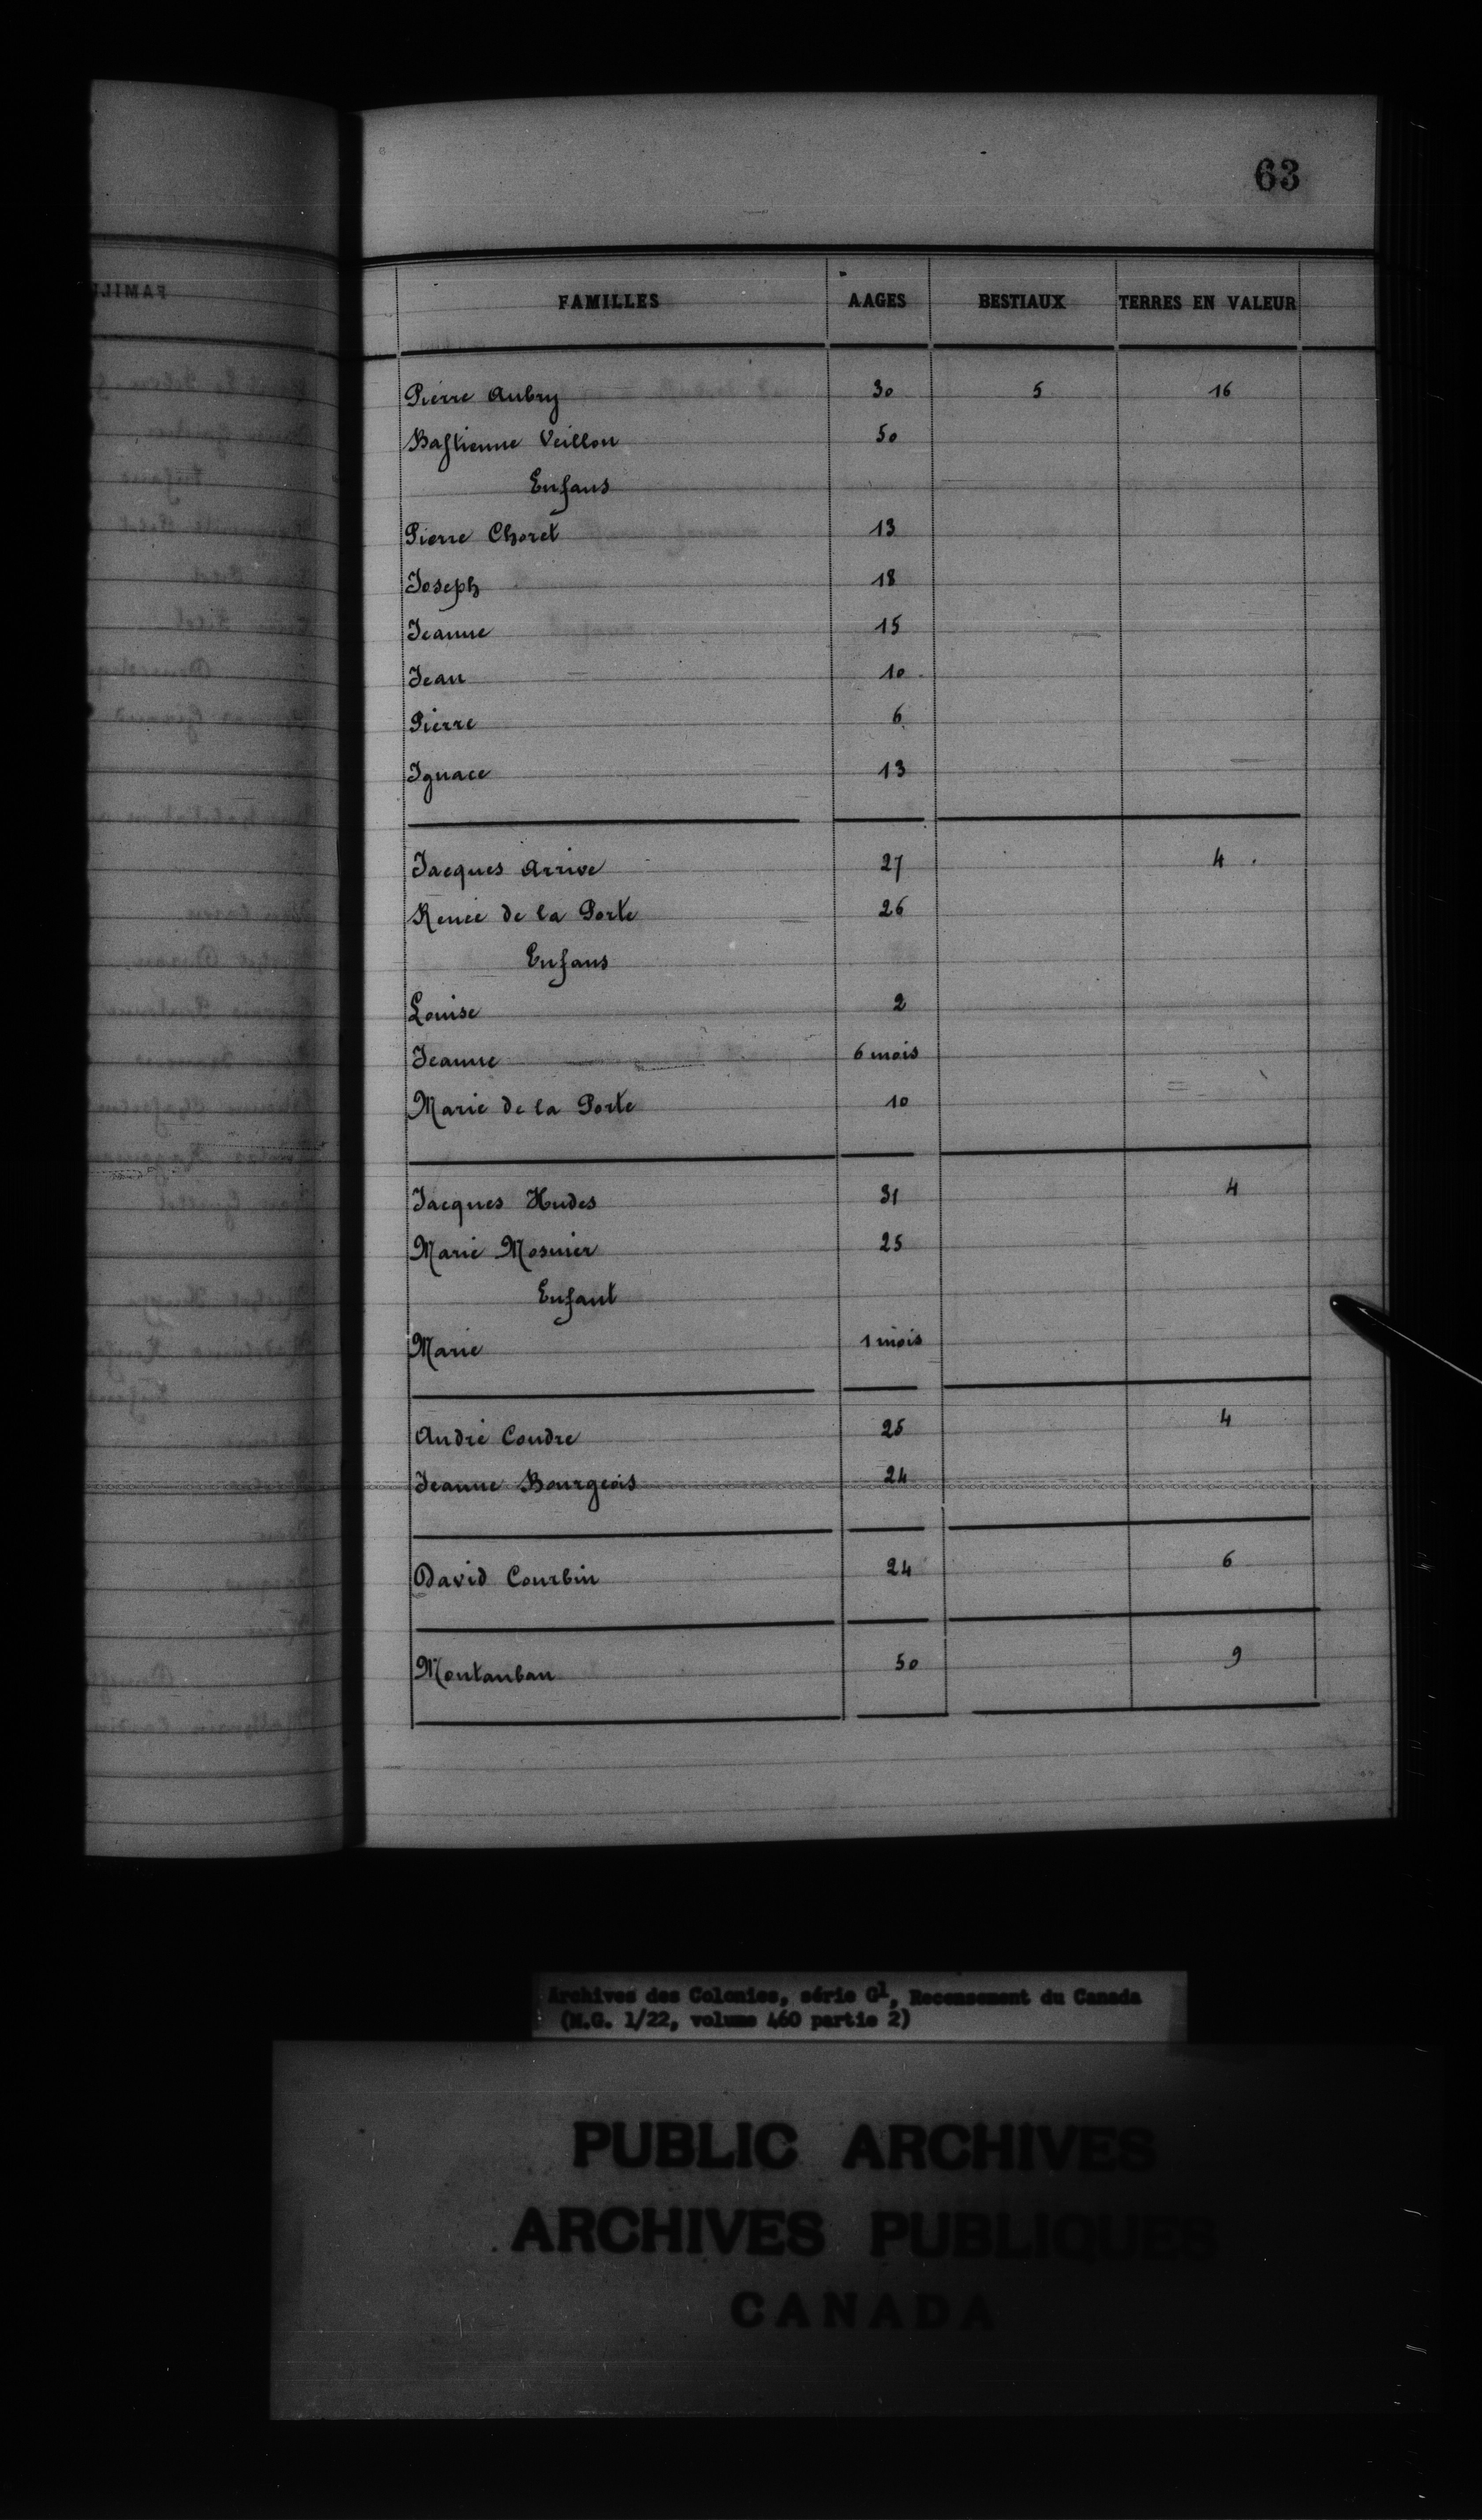 63
FAMILLES AAGES BESTIAUX TERRES EN VALEUR
Pierre Aubry 30 5 16
Bastienne Veillon 50
Enfans
Pierre Choret 13
Joseph 18
Jeanne 15
Jean 10
Pierre 6
Ignace 13
Jacques Arrive 27 4
Renée de la Porte 26
Enfans
Louise 2
Jeanne 6 mois
Marie de la Porte 10
Jacques Hudes 31 4
Marie Mosnier 25
Enfant
Marie 1 mois
André Coudre 25 4
Jeanne Bourgeois 24
David Courbin 24 6
Montauban 50 9
Archives des Colonies, série G1, Recensement du Canada
(M.G. 1/22, volume 460 partie 2)
PUBLIC ARCHIVES
ARCHIVES PUBLIQUES
CANADA